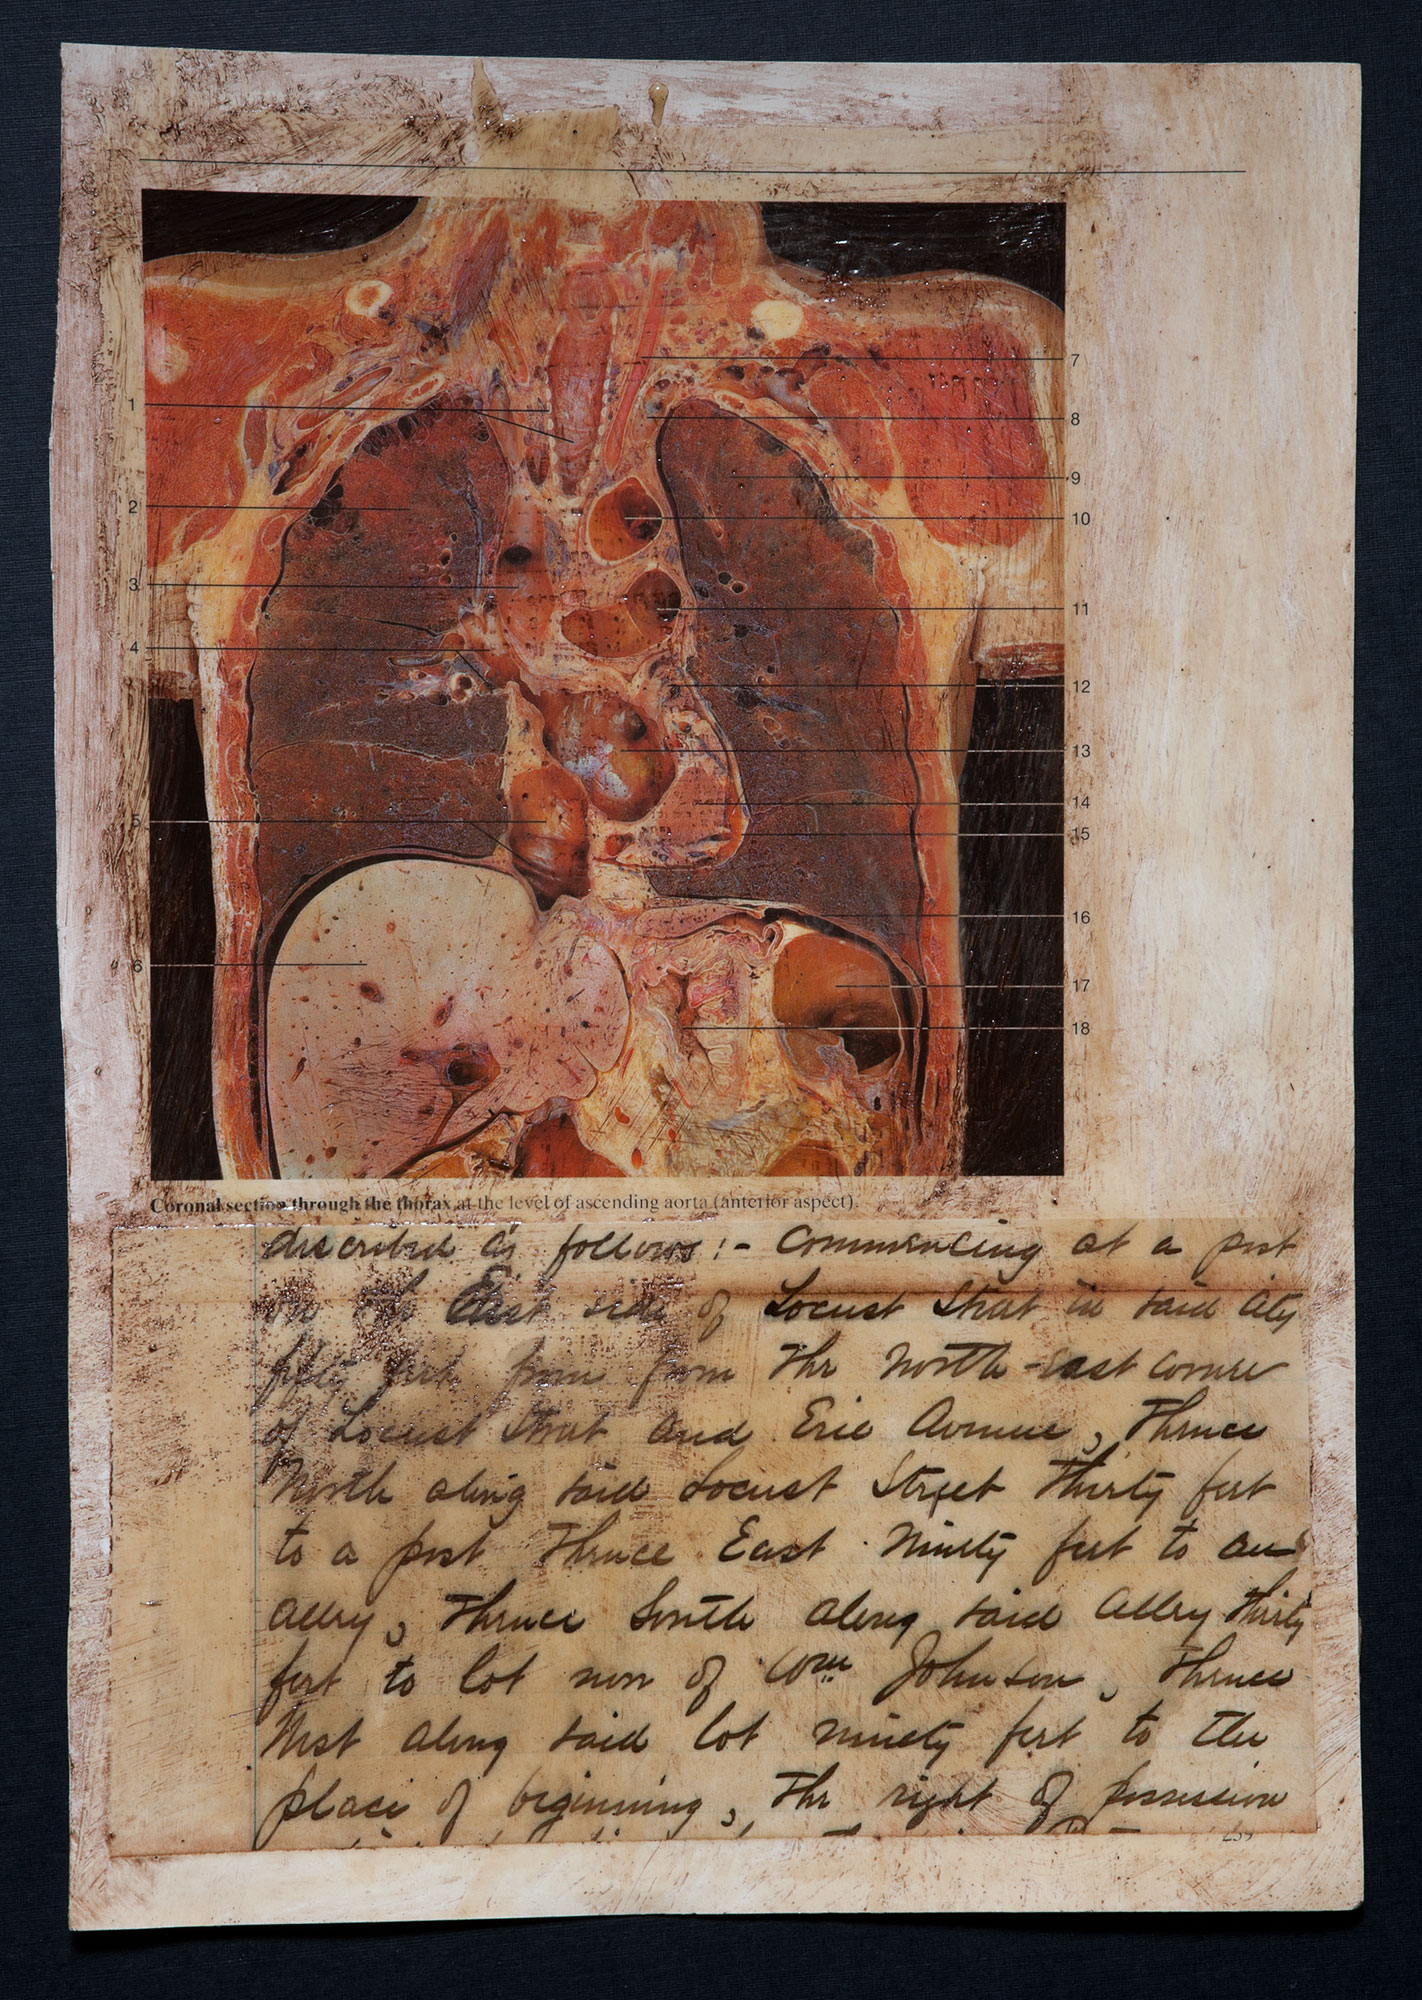 1
2
3
4
5
6
7
8
9
10
11
12
13
14
15
16
17
18
Coronal section through the thorax at the level of ascending aorta (anterior aspect).
described as follows:- Commencing at a post
on the East side of Locust Street in said City
fifty feet from from the North-east corner
of Locust Street and Erie Avenue, Thence
North along said Locust Street Thirty feet
to a post Thence East Ninety feet to an
alley, Thence South along said alley Thirty
feet to lot now of Wm Johnson, Thence
West along said lot ninety feet to the
place of beginning, The right of possession